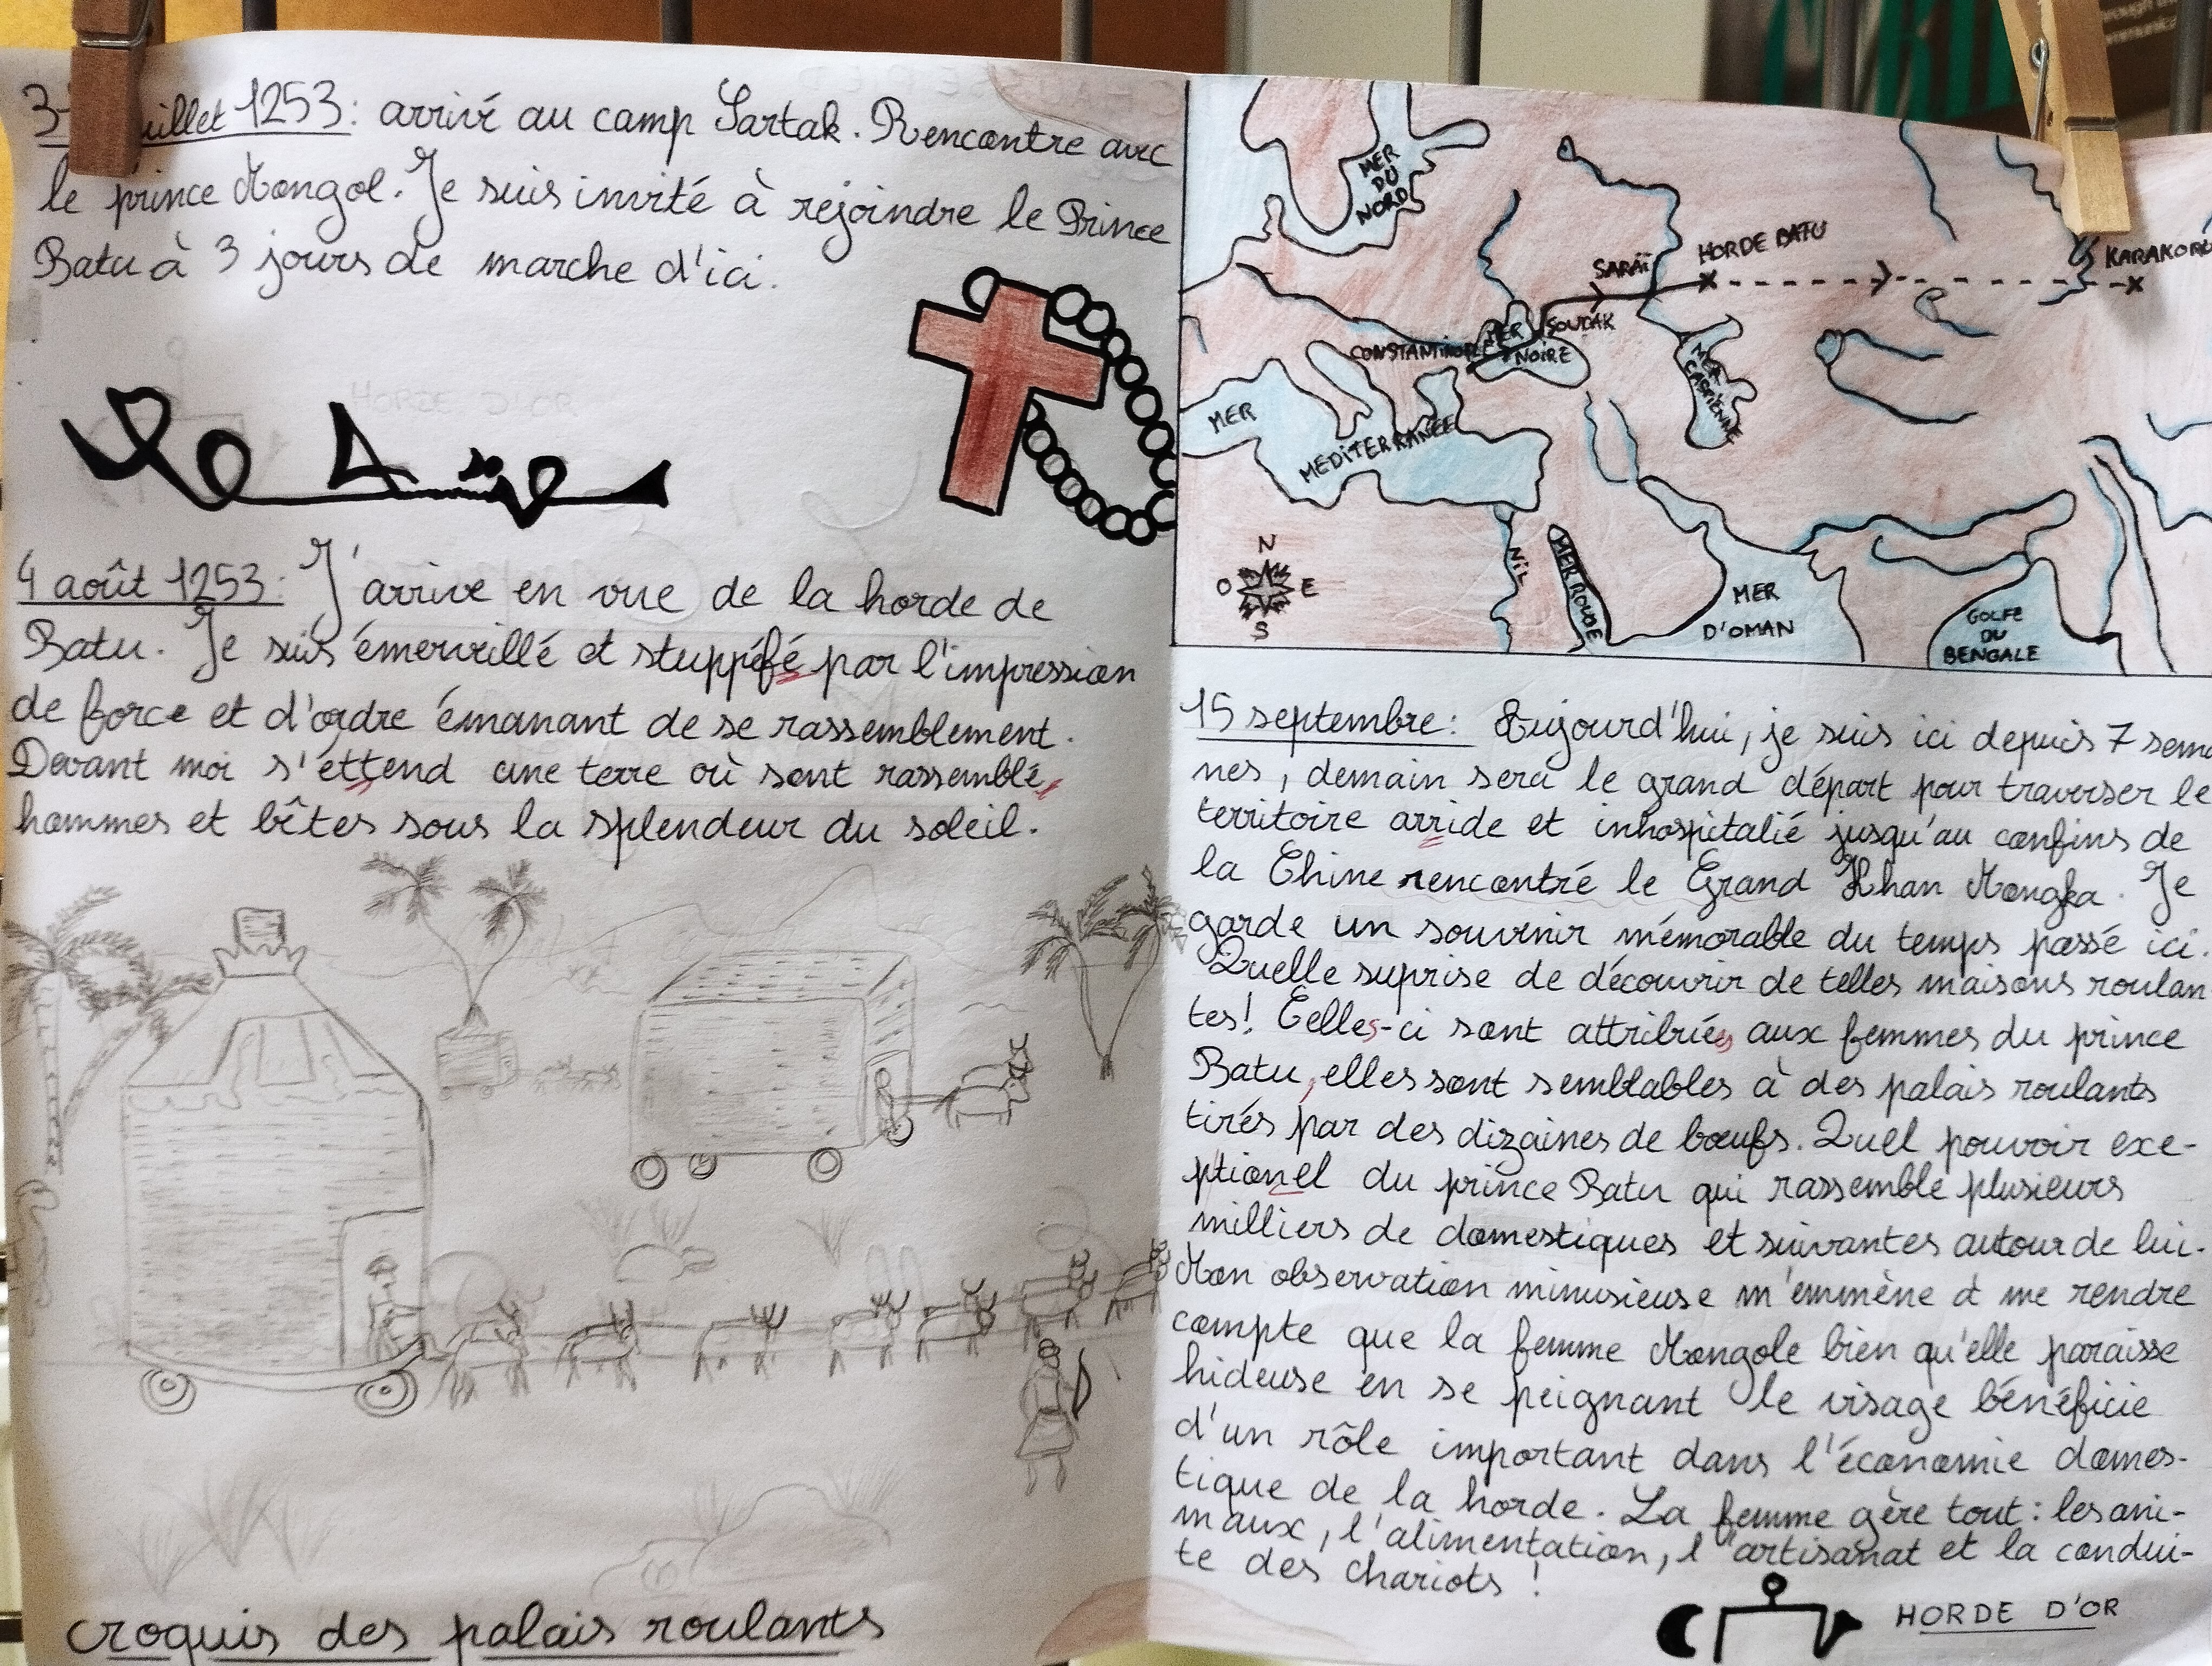 uillet 1253 : arrivé au camp Sartak. Rencontre avec
le prince Mongol. Je suis invité à rejoindre le Prince
Batu à 3 jours de marche d'ici.
4 août 1253 : J'arrive en vue de la horde de
Batu. Je suis émerveillé et stuppéfé par l'impression
de force et d'ordre émanant de se rassemblement.
Devant moi s'éttend une terre où sont rassemblé
hommes et bêtes sous la splendeur du soleil.
croquis des palais roulants
MER
DU
NORD
SARAÏ
HORDE BATU
KARAKORU
SOUDAK
CONSTANTINOPLE
MER
NOIRE
MER
CASPIENNE
MER
MEDITERRANÉE
N
O
E
S
NIL
MER ROUGE
MER
D'OMAN
GOLFE
DU
BENGALE
15 septembre : Aujourd'hui, je suis ici depuis 7 sema
nes, demain sera le grand départ pour traverser le
territoire arride et inhospitalié jusqu'au confins de
la Chine rencontré le Grand Khan Mongka. Je
garde un souvenir mémorable du temps passé ici.
Quelle suprise de découvrir de telles maisons roulan
tes! Celles-ci sont attribuées aux femmes du prince
Batu, elles sont semblables à des palais roulants
tirés par des dizaines de bœufs. Quel pouvoir exe-
ptionel du prince Batu qui rassemble plusieurs
milliers de domestiques et suivantes autour de lui.
Mon observation minusieuse m'emmène à me rendre
compte que la femme Mongole bien qu'elle paraisse
hideuse en se peignant le visage bénéficie
d'un rôle important dans l'économie domes-
tique de la horde. La femme gère tout : les ani-
maux, l'alimentation, l'artisanat et la condui-
te des chariots !
HORDE D'OR